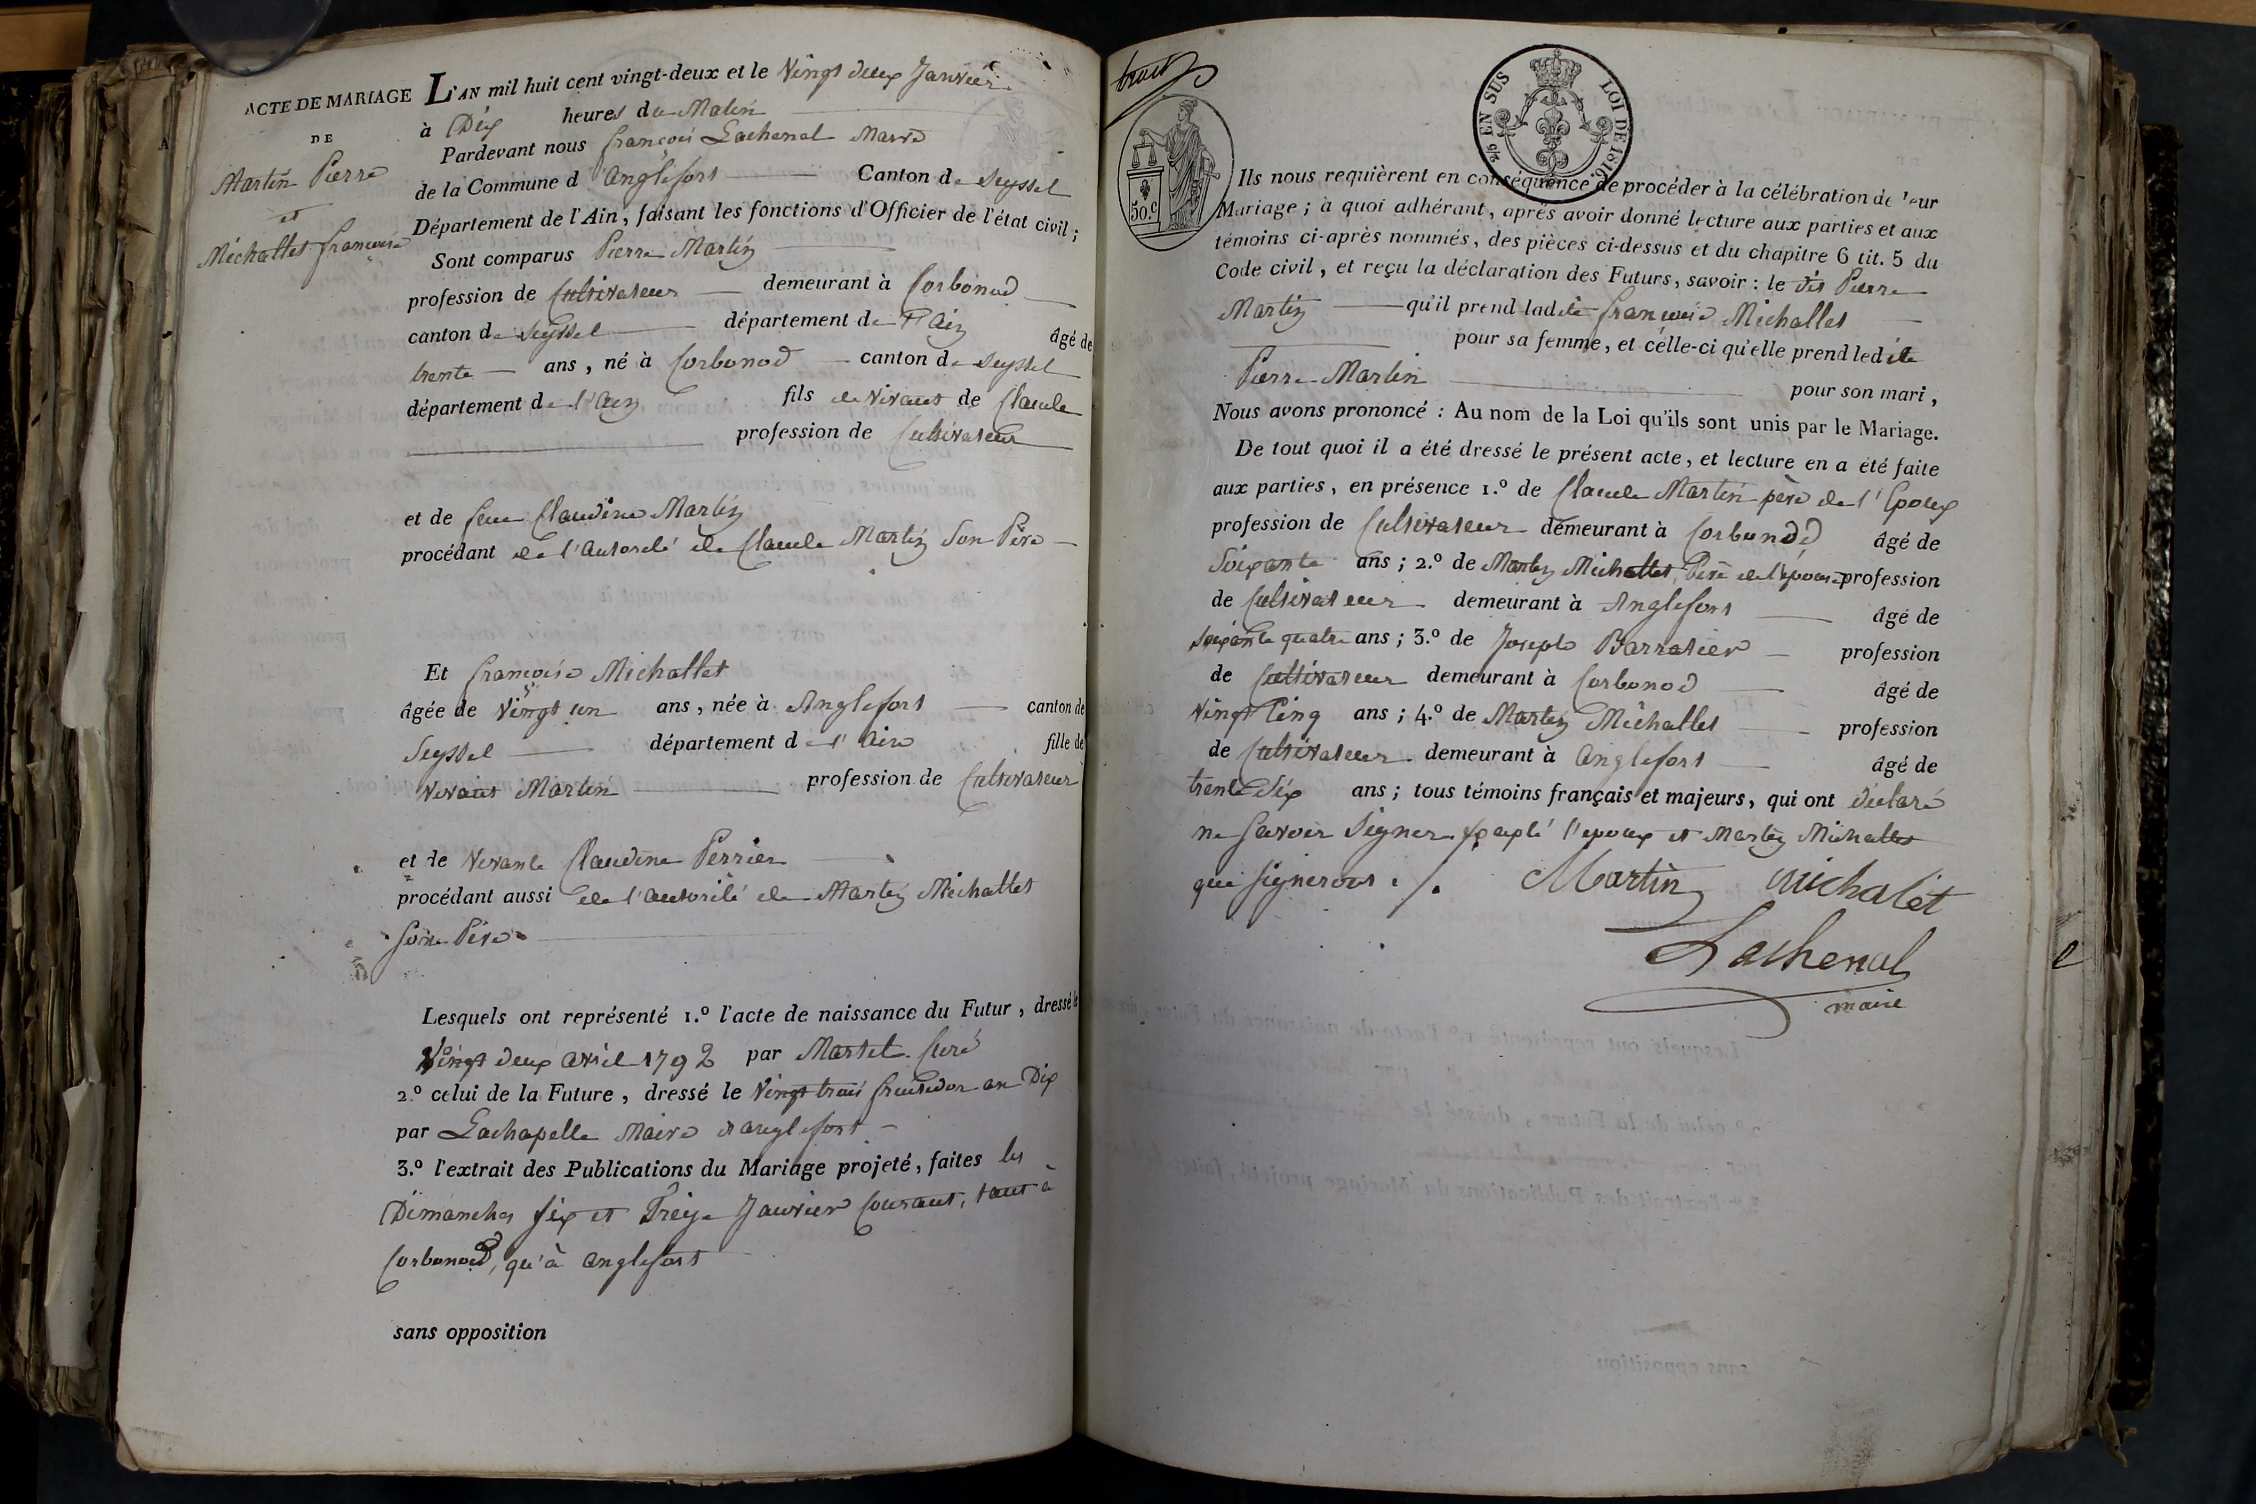 ACTE DE MARIAGE
DE
Martin Pierre
et
Michallet françoise
L'AN mil huit cent vingt-deux et le Vingt deux Janvier
à Dix heures du Matin
Pardevant nous françois Lachenal Maire
de la Commune d'Anglefort Canton de Seyssel
Département de l'Ain, faisant les fonctions d'Officier de l'état civil;
Sont comparus Pierre Martin
profession de Cultivateur demeurant à Corbonod
canton de Seyssel département de l'Ain âgé de
trente ans, né à Corbonod canton de Seyssel
département de l'Ain fils de vivant de Claude
profession de Cultivateur
et de feue Claudine Martin
procédant de l'autorité de Claude Martin Son Père
Et françoise Michallet
âgée de Vingt un ans, née à Anglefort canton de
Seyssel département de l'Ain fille de
vivant Martin profession de Cultivateur
et de Vivante Claudine Perrier
procédant aussi de l'autorité de Martin Michallet
Son Père
Lesquels ont représenté 1.º l'acte de naissance du Futur, dressé le
Vingt deux avril 1792 par Martel Curé
2.º celui de la Future, dressé le Vingt trois fructidor an Dix
par Lachapelle Maire d'anglefort
3.º l'extrait des Publications du Mariage projeté, faites les
Dimanches six et Treize Janvier Courant, tant à
Corbonod, qu'à anglefort
sans opposition
50.c
2/5 EN SUS LOI DE 1816.
Ils nous requièrent en conséquence de procéder à la célébration de leur
Mariage; à quoi adhérant, après avoir donné lecture aux parties et aux
témoins ci-après nommés, des pièces ci-dessus et du chapitre 6 tit. 5 du
Code civil, et reçu la déclaration des Futurs, savoir: le dit Pierre
Martin qu'il prend ladite françoise Michallet
pour sa femme, et celle-ci qu'elle prend ledite
Pierre Martin pour son mari,
Nous avons prononcé: Au nom de la Loi qu'ils sont unis par le Mariage.
De tout quoi il a été dressé le présent acte, et lecture en a été faite
aux parties, en présence 1.º de Claude Martin père de l'Epoux
profession de Cultivateur demeurant à Corbonod âgé de
Soixante ans; 2.º de Martin Michallet, Père de l'épouse profession
de Cultivateur demeurant à Anglefort âgé de
soixante quatre ans; 3.º de Joseph Barratier profession
de Cultivateur demeurant à Corbonod âgé de
Vingt Cinq ans; 4.º de Martin Michallet profession
de Cultivateur demeurant à anglefort âgé de
trente Six ans; tous témoins français et majeurs, qui ont déclaré
ne Savoir Signer excepté l'epoux et Martin Michallet
qui signeront ./.
Martin michalet
Lachenal
maire